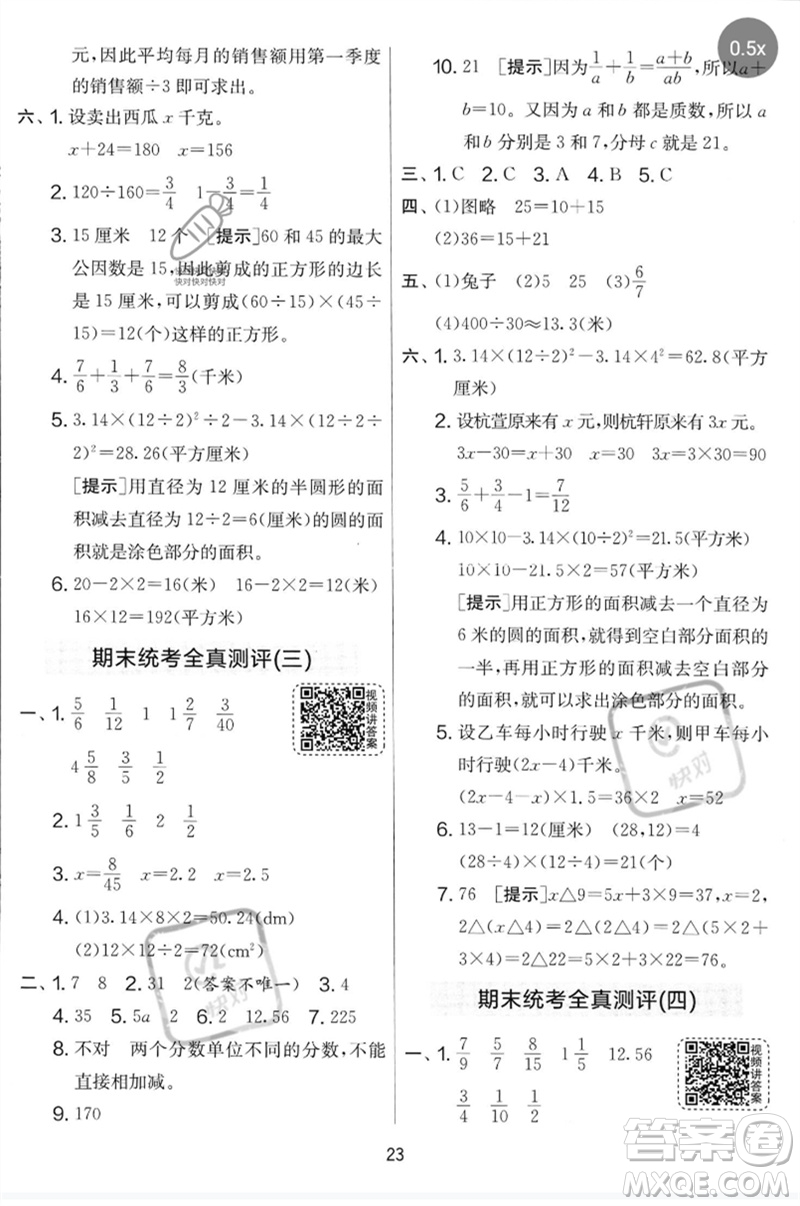 0.5x
元,因此平均每月的销售额用第一季度
的销售额÷3即可求出。
六、1. 设卖出西瓜 x 千克。
x+24=180 x=156
2. 120÷160=3/4 1-3/4=1/4
3. 15厘米 12个 [提示]60和45的最大
公因数是15,因此剪成的正方形的边长
是15厘米,可以剪成(60÷15)×(45÷
15)=12(个)这样的正方形。
4. 7/6+1/3+7/6=8/3(千米)
5. 3.14×(12÷2)²÷2-3.14×(12÷2÷
2)²=28.26(平方厘米)
[提示]用直径为12厘米的半圆形的面
积减去直径为12÷2=6(厘米)的圆的面
积就是涂色部分的面积。
6. 20-2×2=16(米) 16-2×2=12(米)
16×12=192(平方米)
期末统考全真测评(三)
一、1. 5/6 1/12 1 1 2/7 3/40
4 5/8 3/5 1/2
视频讲答案
2. 1 3/5 1/6 2 1/2
3. x=8/45 x=2.2 x=2.5
4. (1)3.14×8×2=50.24(dm)
(2)12×12÷2=72(cm²)
二、1. 7 8 2. 31 2(答案不唯一) 3. 4
4. 35 5. 5a 2 6. 2 12.56 7. 225
8. 不对 两个分数单位不同的分数,不能
直接相加减。
9. 170
10. 21 [提示]因为1/a+1/b=(a+b)/ab,所以a+
b=10。又因为a和b都是质数,所以a
和b分别是3和7,分母c就是21。
三、1. C 2. C 3. A 4. B 5. C
四、(1)图略 25=10+15
(2)36=15+21
五、(1)兔子 (2)5 25 (3)6/7
(4)400÷30≈13.3(米)
六、1. 3.14×(12÷2)²-3.14×4²=62.8(平方
厘米)
2. 设杭萱原来有x元,则杭轩原来有3x元。
3x-30=x+30 x=30 3x=3×30=90
3. 5/6+3/4-1=7/12
4. 10×10-3.14×(10÷2)²=21.5(平方米)
10×10-21.5÷2-3.14×(6÷2)²=
60.99(平方米)
[提示]用正方形的面积减去一个直径为
6米的圆的面积,就得到空白部分面积的
一半,再用正方形的面积减去空白部分
的面积,可以求出涂色部分的面积。
5. 设乙车每小时行驶x千米,则甲车每小
时行驶(2x-4)千米。
(2x-4-x)×1.5=36×2 x=52
6. 13-1=12(厘米) (28,12)=4
(28÷4)×(12÷4)=21(个)
7. 76 [提示]x△9=5x+3×9=37,x=2,
2△(x△4)=2△(2△4)=2△(5×2+
3×4)=2△22=5×2+3×22=76。
期末统考全真测评(四)
一、1. 7/9 5/7 8/15 1 1/5 12.56
3/4 1/10 1/2
视频讲答案
快对快对快对
快对
快对
23
答案圈
MXQE.COM